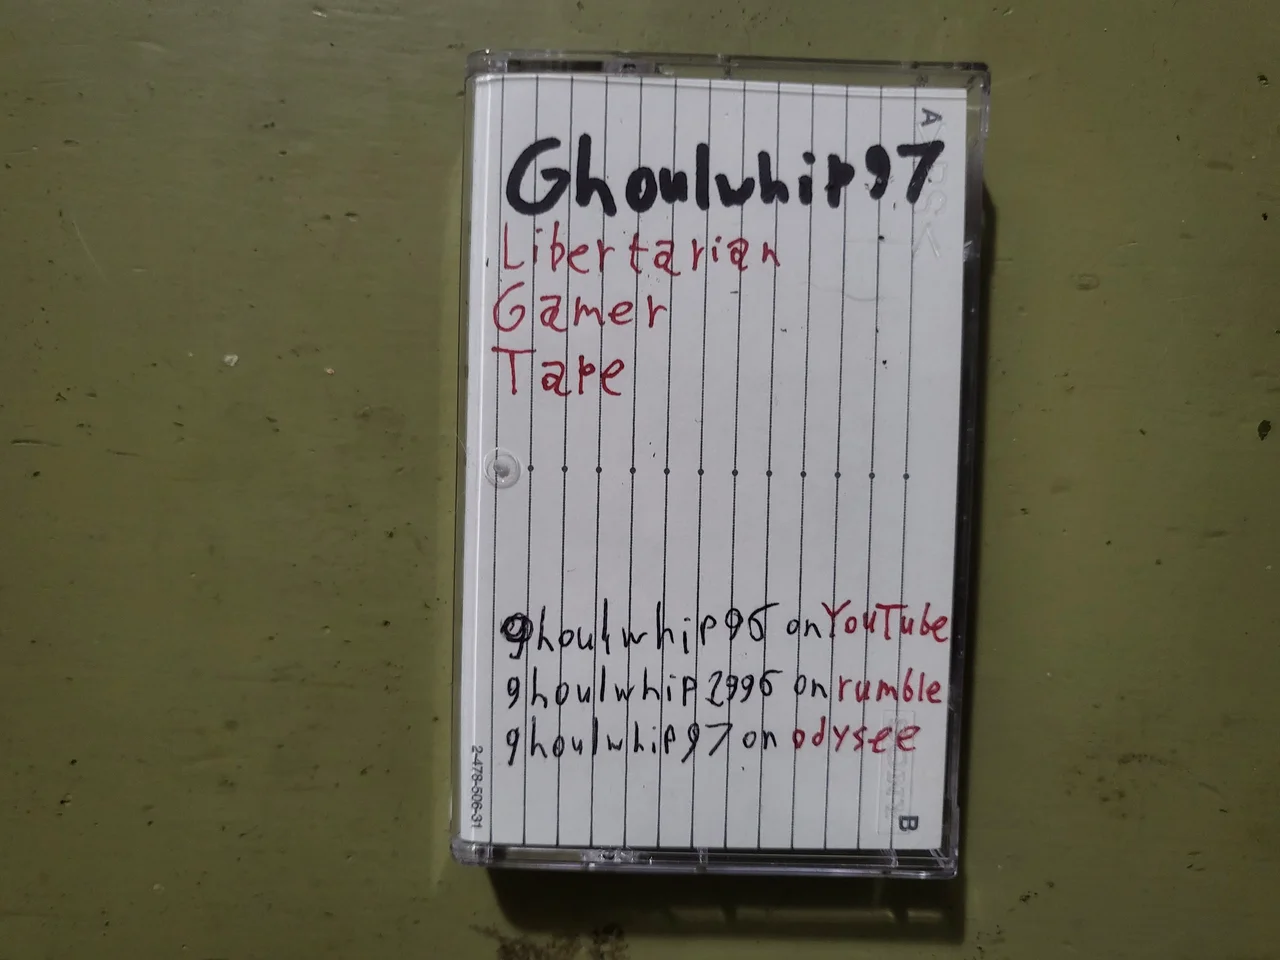 A
Ghoulwhip97
Libertarian
Gamer
Tape
ghoulwhip95 on YouTube
ghoulwhip2995 on rumble
ghoulwhip97 on odysee
2-478-506-31
B